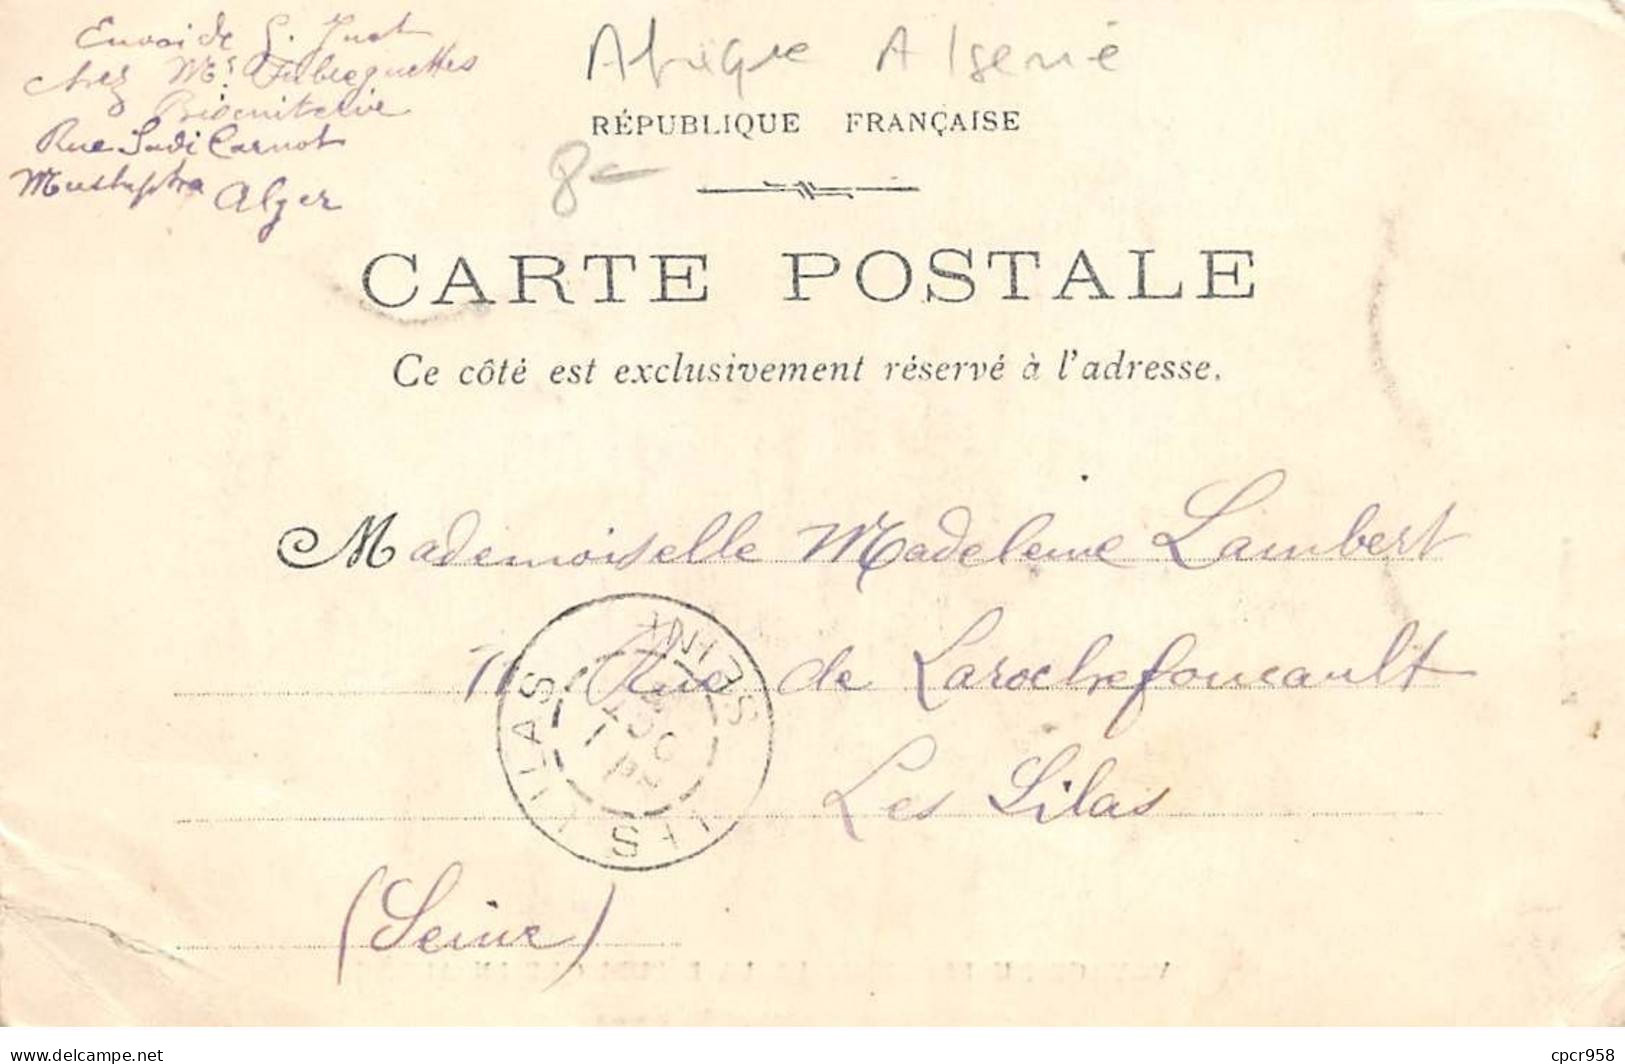 Envoi de G. Juat
chez Mr Fabreguettes
Biscuiterie
Rue Sadi Carnot
Mustapha Alger
Afrique Algerie
RÉPUBLIQUE FRANÇAISE
8-
CARTE POSTALE
Ce côté est exclusivement réservé à l'adresse.
Mademoiselle Madeleine Lambert
11 Rue de Larochefoucault
Les Lilas
(Seine)
LES LILAS SEINE
www.delcampe.net
cpcr958